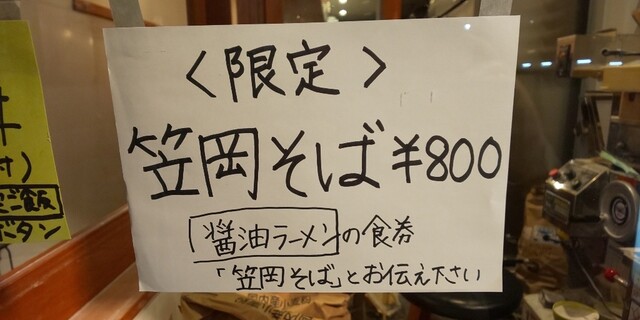 <限定>
笠岡そば ¥800
醤油ラーメンの食券
「笠岡そば」とお伝え下さい
ご飯
ボタン